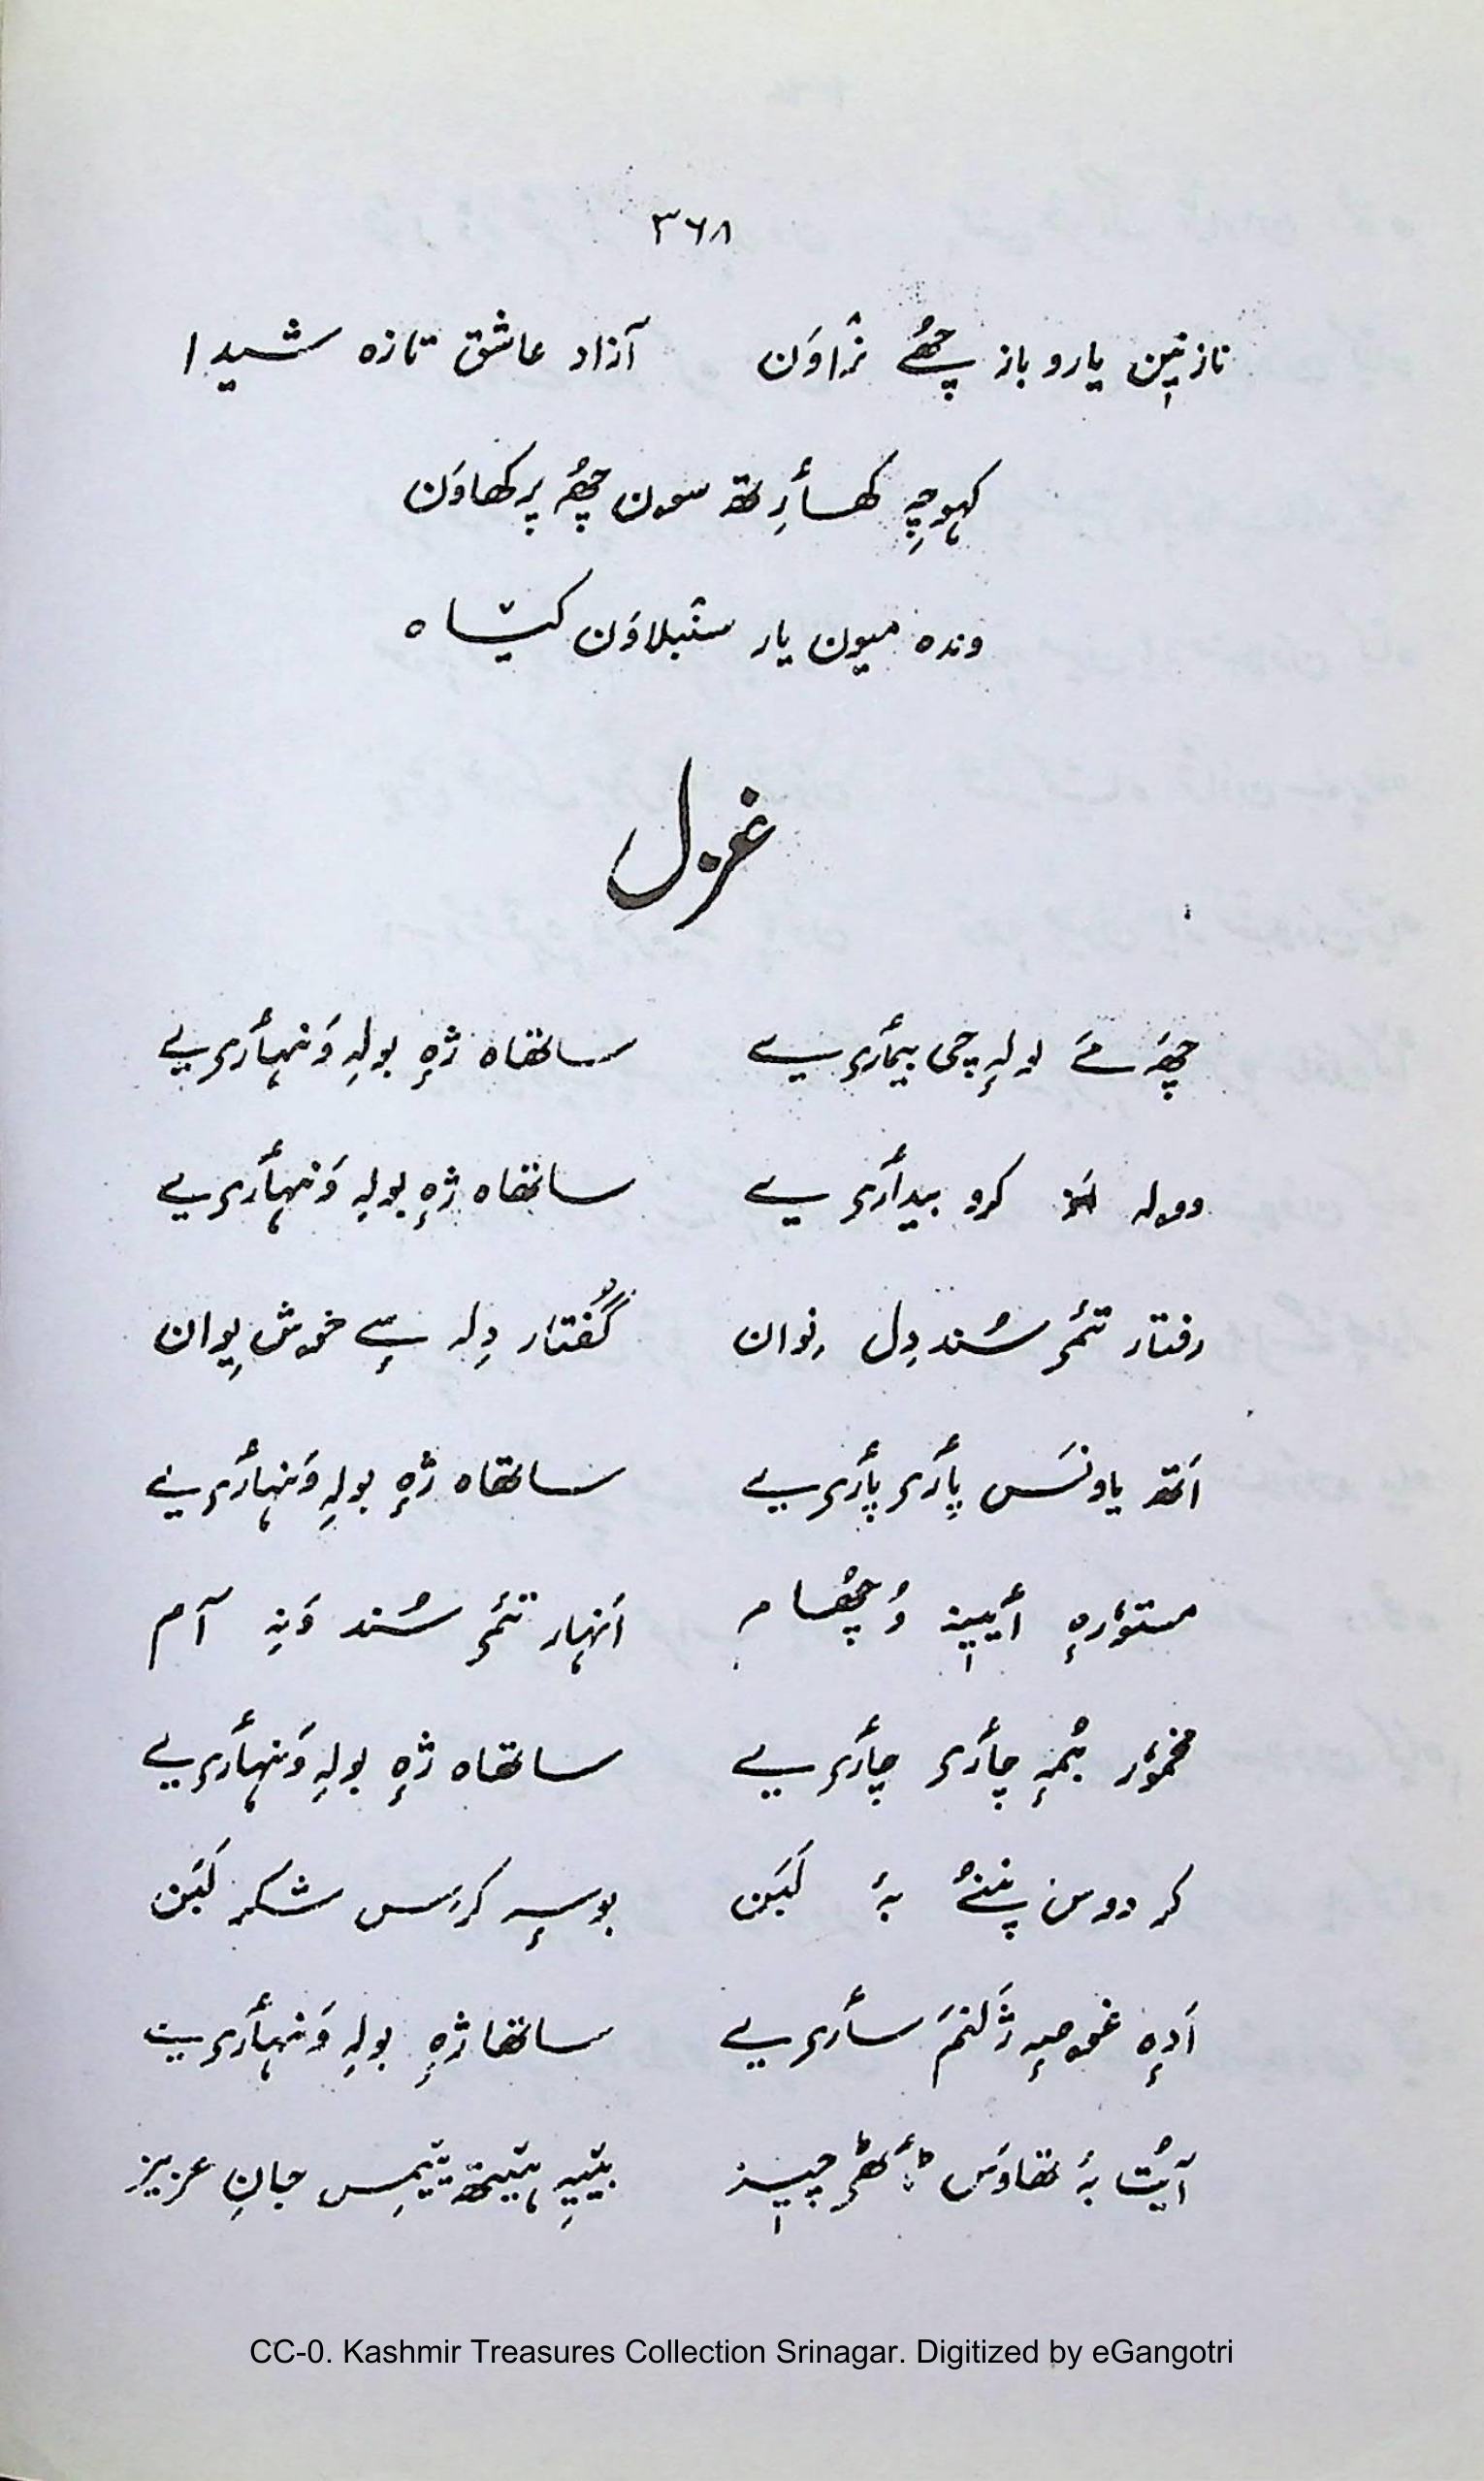 ۳۶۸
نازنیٖن یارو باز چھُے ژٔاوَن آزاد عاشق تازہ شیدا
کہوچِہ کھأرِتھ سون چھُہ پرکھاوَن
وندہ میون یار سنبلاوَن کیٚاہ
غزل
چھَہ مےٚ لولہٕ چی بیمٲری یے ساتھاہ ژٕہ بولہِ وَنہٲری یے
وولہ کرو بیدٲری یے ساتھاہ ژٕہ بولہِ وَنہٲری یے
رفتار تٔمۍ سُند دِل نِوان گُفتار دِلہ سےٕ خوش یِوان
اَتھ یاونَس پٲرۍ پٲرۍ یے ساتھاہ ژٕہ بولہِ وَنہٲری یے
مستوٗرہٕ أیینہٕ وُچھُام اَنہار تٔمۍ سُند وَنہِ آم
مخموٗر بُمہٕ چٲرۍ چٲرۍ یے ساتھاہ ژٕہ بولہِ وَنہٲری یے
کر دوس پننُے بہٕ لَبَن بوسہٕ کرَس شکر لَبَن
اَدہٕ غوصہٕ ژَلنمَ سٲری یے ساتھا ژٕہ بولہِ وَنہٲری یے
آیُت بہٕ تھاوَس ٹٲٹھۍ چیٖز بیٚیہِ ہیٚتھ یِیمِس جانِ عزیز
CC-0. Kashmir Treasures Collection Srinagar. Digitized by eGangotri